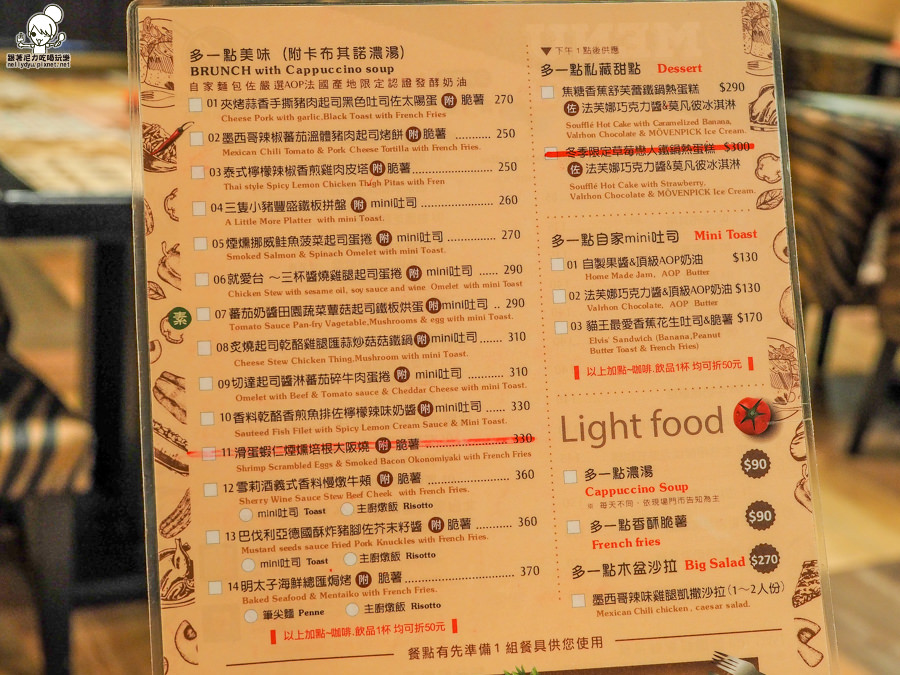 跟著尼力吃喝玩樂
nellydyu.pixnet.net
多一點美味（附卡布其諾濃湯）
BRUNCH with Cappuccino soup
自家麵包佐嚴選AOP法國產地限定認證發酵奶油
01 夾烤蒜香手撕豬肉起司黑色吐司佐太陽蛋 附 脆薯 270
Cheese Pork with garlic,Black Toast with French Fries
02 墨西哥辣椒蕃茄溫體豬肉起司烤餅 附 脆薯 ........... 250
Mexican Chili Tomato & Pork Cheese Tortilla with French Fries.
03 泰式檸檬辣椒香煎雞肉皮塔 附 脆薯 ........... 250
Thai style Spicy Lemon Chicken Thigh Pitas with Fren
04 三隻小豬豐盛鐵板拼盤 附 mini吐司 ........... 260
A Little More Platter with mini Toast.
05 煙燻挪威鮭魚菠菜起司蛋捲 附 mini吐司 ........... 270
Smoked Salmon & Spinach Omelet with mini Toast.
06 就愛台 ～三杯醬燒雞腿起司蛋捲 附 mini吐司 ...... 290
Chicken Stew with sesame oil, soy sauce and wine Omelet with mini Toast
素
07 蕃茄奶醬田園蔬菜蕈菇起司鐵板烘蛋 附 mini吐司 .. 290
Tomato Sauce Pan-fry Vagetable,Mushrooms & egg with mini Toast.
08 炙燒起司乾酪雞腿匯蒜炒菇菇鐵鍋 附 mini吐司 ...... 310
Cheese Stew Chicken Thing,Mushroom with mini Toast.
09 切達起司醬淋蕃茄碎牛肉蛋捲 附 mini吐司 ........ 310
Omelet with Beef & Tomato sauce & Cheddar Cheese with mini Toast.
10 香料乾酪香煎魚排佐檸檬辣味奶醬 附 mini吐司 ...... 330
Sauteed Fish Filet with Spicy Lemon Cream Sauce & Mini Toast.
11 滑蛋蝦仁煙燻培根大阪燒 附 脆薯 ........... 330
Shrimp Scrambled Eggs & Smoked Bacon Okonomiyaki with French Fries
12 雪莉酒義式香料慢燉牛頰 附 脆薯 ........... 360
Sherry Wine Sauce Stew Beef Cheek with French Fries.
mini吐司 Toast 主廚燉飯 Risotto
13 巴伐利亞德國酥炸豬腳佐芥末籽醬 附 脆薯 ........ 360
Mustard seeds sauce Fried Pork Knuckles with French Fries.
mini吐司 Toast 主廚燉飯 Risotto
14 明太子海鮮總匯焗烤 附 脆薯 ........... 370
Baked Seafood & Mentaiko with French Fries.
筆尖麵 Penne 主廚燉飯 Risotto
以上加點~咖啡.飲品1杯 均可折50元
餐點有先準備1組餐具供您使用
▼下午1點後供應
多一點私藏甜點 Dessert
焦糖香蕉舒芙蕾鐵鍋熱蛋糕 $290
佐 法芙娜巧克力醬&莫凡彼冰淇淋
Soufflé Hot Cake with Caramelized Banana,
Valrhon Chocolate & MÖVENPICK Ice Cream.
冬季限定草莓戀人鐵鍋熱蛋糕 $300
佐 法芙娜巧克力醬&莫凡彼冰淇淋
Soufflé Hot Cake with Strawberry,
Valrhon Chocolate & MÖVENPICK Ice Cream.
多一點自家mini吐司 Mini Toast
01 自製果醬&頂級AOP奶油 $130
Home Made Jam, AOP Butter
02 法芙娜巧克力醬&頂級AOP奶油 $130
Valrhon Chocolate, AOP Butter
03 貓王最愛香蕉花生吐司&脆薯 $170
Elvis' Sandwich (Banana,Peanut
Butter Toast & French Fries)
以上加點~咖啡.飲品1杯 均可折50元
Light food
多一點濃湯 $90
Cappuccino Soup
※ 每天不同，依現場門市告知為主
多一點香酥脆薯 $90
French fries
多一點木盆沙拉 Big Salad $270
墨西哥辣味雞腿凱撒沙拉(1～2人份)
Mexican Chili chicken , caesar salad.